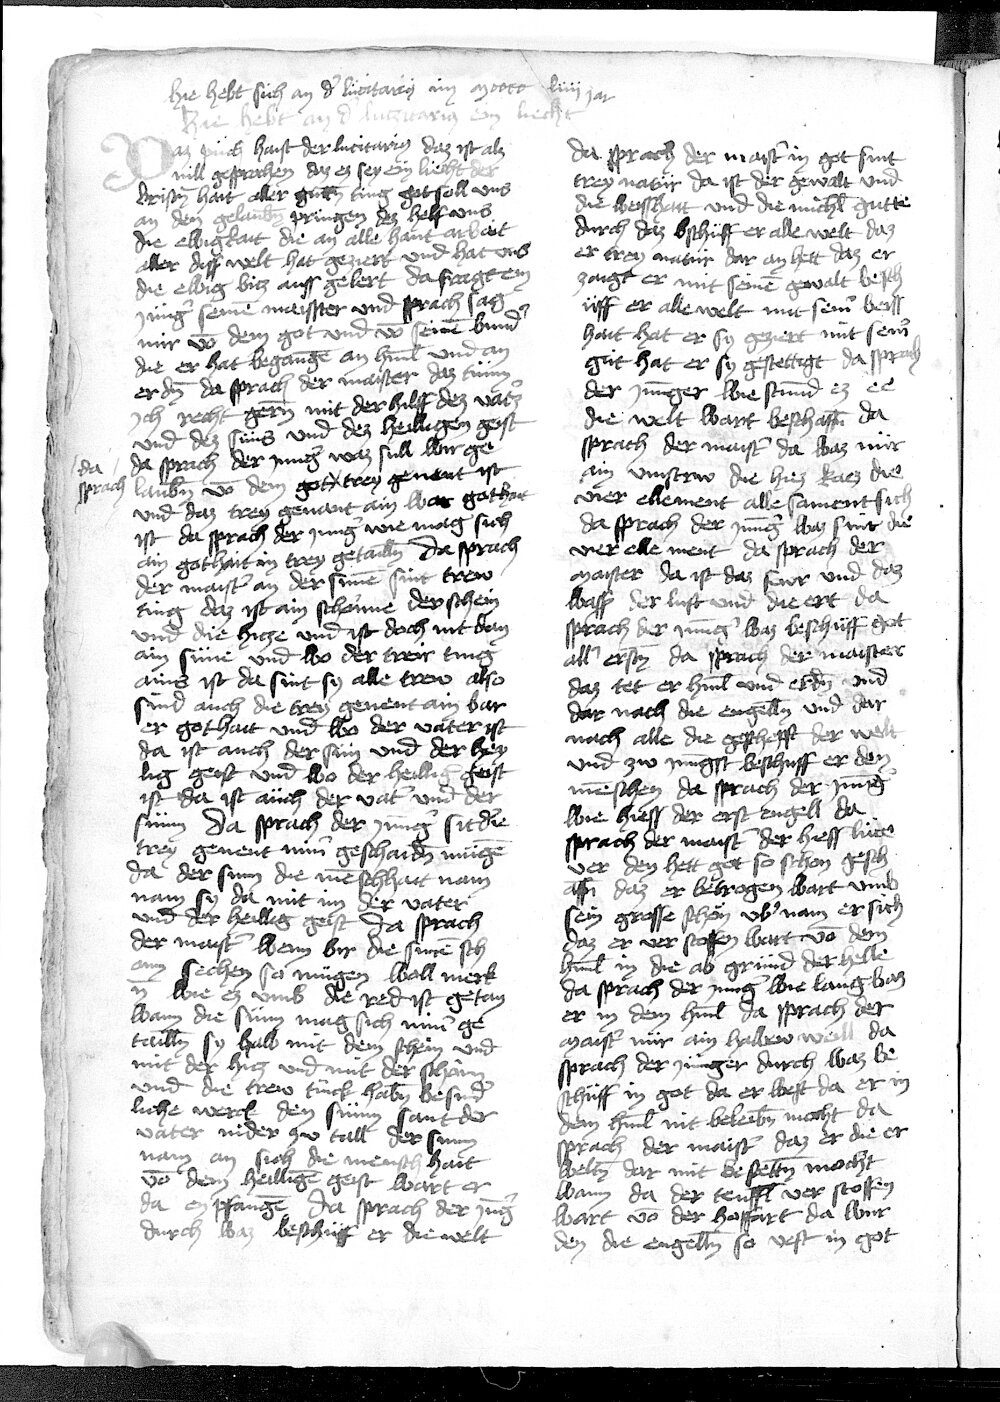 hie hebt sich an d' lucitariy im mcccc liiij jar
hie hebt an d' lucitariy ein liecht
Daz puch haist der lucitariy daz ist alz
vill gesprochen daz ez sey ein liecht der
kristn hait aller gutn ting got soll uns
an den gelaubn pringen dez helf uns
die ewigkait die an alle hant arbait
aller diss welt hat geziert und hat uns
die ewig bitz auss gelert da fragt ein
jung' seinē maisster und sprach sag
mir vō dem got und vō seinē bund'
die er hat begangē an himl und an
erdn da sprach der maister daz tuun
ich recht gern mit der hilff dez vatz
und dez suns und dez heiligen geist
da sprach der jung' waz sull wir ge
da sprach
laubn vō dem got trey genent ist
und daz trey genant ain war gothait
ist da sprach der jung' wie mag sich
ain gothait in trey getailn Da sprach
der maist' an der sunē sint trew
ting daz ist ain schonne der schein
und die hicze und ist doch nit dan
ain sune und wo der treir ting
ains ist da sint sy alle trew also
sind auch die trey genent ain bar
er gothait und wo der vater ist
da ist auch der sun und der hey
lig geist und wo der heillig geist
ist da ist auch der vat' und der
sunn Da sprach der jung' sit die
trey genent nim' geschaidn mugē
da der sunn die mēschhait nam
nam sy da mit im der vater
und der heillig geist Da sprach
der maist' wenn bir die sunē sch
ann sechen so mugen woll merk
n wie ez umb die red ist getan
wann die sunn mag sich nim' ge
tailn sy hab mit dem schein und
mit der hicz und mit der schonn
und die trew tuck habn besund'
liche werck den sunn sant der
vater nider zu tall der sunn
nam an sich die mensch hait
vō dem heilligē geist wart er
da enpfangē Da sprach der jung'
durch waz beschuff er die welt
da sprach der maist' in got sint
trey natur da ist der gewalt und
die weisshait und die michl gutte
durch daz bschuff er alle welt daz
er trey natur dar an hett daz er
zaigt er mit seinē gewalt besch
uff er alle welt mit sein' weiss
hait hat er sy geziert mit sein'
gut hat er sy gestettigt da sprach
der junger wie stund ez ee
die welt wart beschaffn da
sprach der maist' da waz nur
ain unstrw die hiez kaez die
vier ellement alle sament sich
da sprach der jung' waz sint die
vier elle ment da sprach der
maister da ist daz fewr und daz
wass' der luft und die ert da
sprach der jung' waz beschuff got
all' erstn da sprach der maister
daz tet er himl und erdn und
dar nach die engelln und dar
nach alle die geschefft der welt
und zw jungst beschuff er den
mēschen da sprach der jung'
wie hiess der erst engell da
sprach der maist' der hiess luce
ver den hett got so schon gesch
affn daz er betrogen wart umb
sein grosse schon ub' nam er sich
daz er ver stossen wart vō dem
himl in die ab grund der helle
da sprach der jung' wie lang waz
er in dem himl da sprach der
maist' nur ain halbew weill da
sprach der junger durch waz be
schuff in got da er west da er in
dem himl nit beleibn mocht da
sprach der maist' daz er die er
weltn dar mit be settn mocht
wann da der teuffl ver stossen
wart vō der hoffart da wur
den die engelln so vest in got